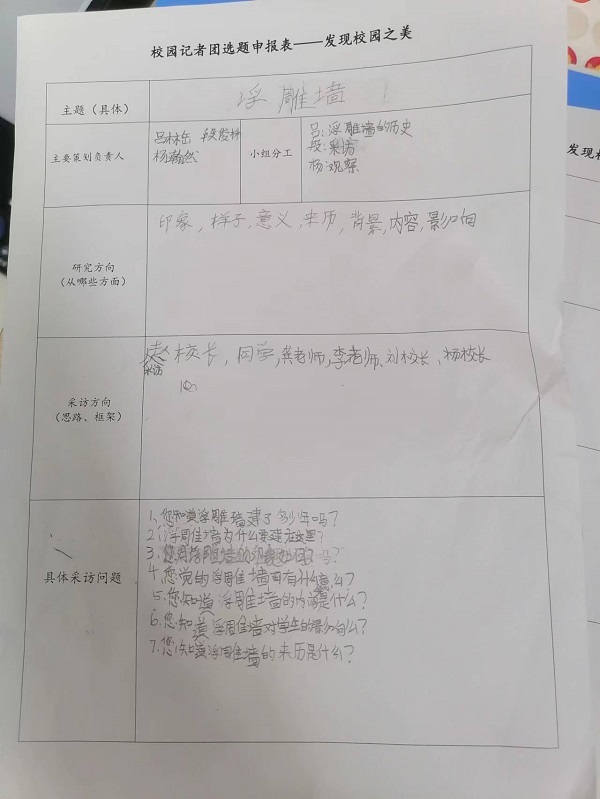 校园记者团选题申报表——发现校园之美
主题（具体）
浮雕墙！
主要策划负责人
吕林缶 段殷林
杨瀚然
小组分工
吕:浮雕墙的历史
段:采访
杨:观察
研究方向
（从哪些方面）
印象,样子,意义,来历,背景,内容,影响
采访方向
（思路、框架）
赵校长,同学,龚老师,李老师、刘校长、杨校长
采访
具体采访问题
1、您知道浮雕墙建了多少年吗?
2、浮雕墙为什么要建在这里?
3、您觉得浮雕墙的 吗?
4、您觉的浮雕墙画有什么意义?
5、您知道浮雕墙的内容是什么?
6、您知道浮雕墙对学生的影响么?
7、您知道浮雕墙的来历是什么?
发现校